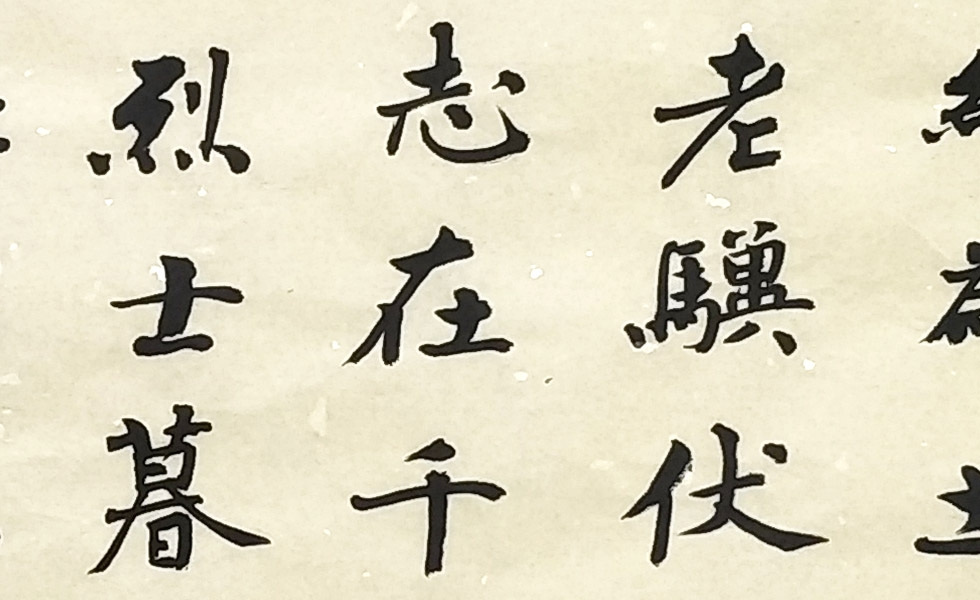 老驥伏
志在千
烈士暮